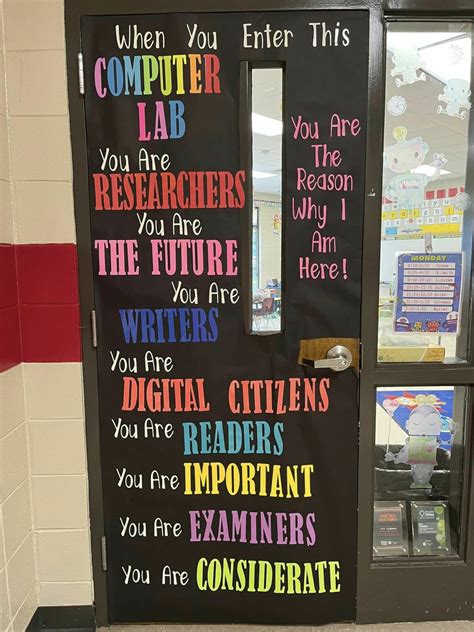 When You Enter This
COMPUTER
LAB
You Are
RESEARCHERS
You Are
THE FUTURE
You Are
WRITERS
You Are
DIGITAL CITIZENS
You Are READERS
You Are IMPORTANT
You Are EXAMINERS
You Are CONSIDERATE
You Are
The
Reason
Why I
Am
Here!
MONDAY